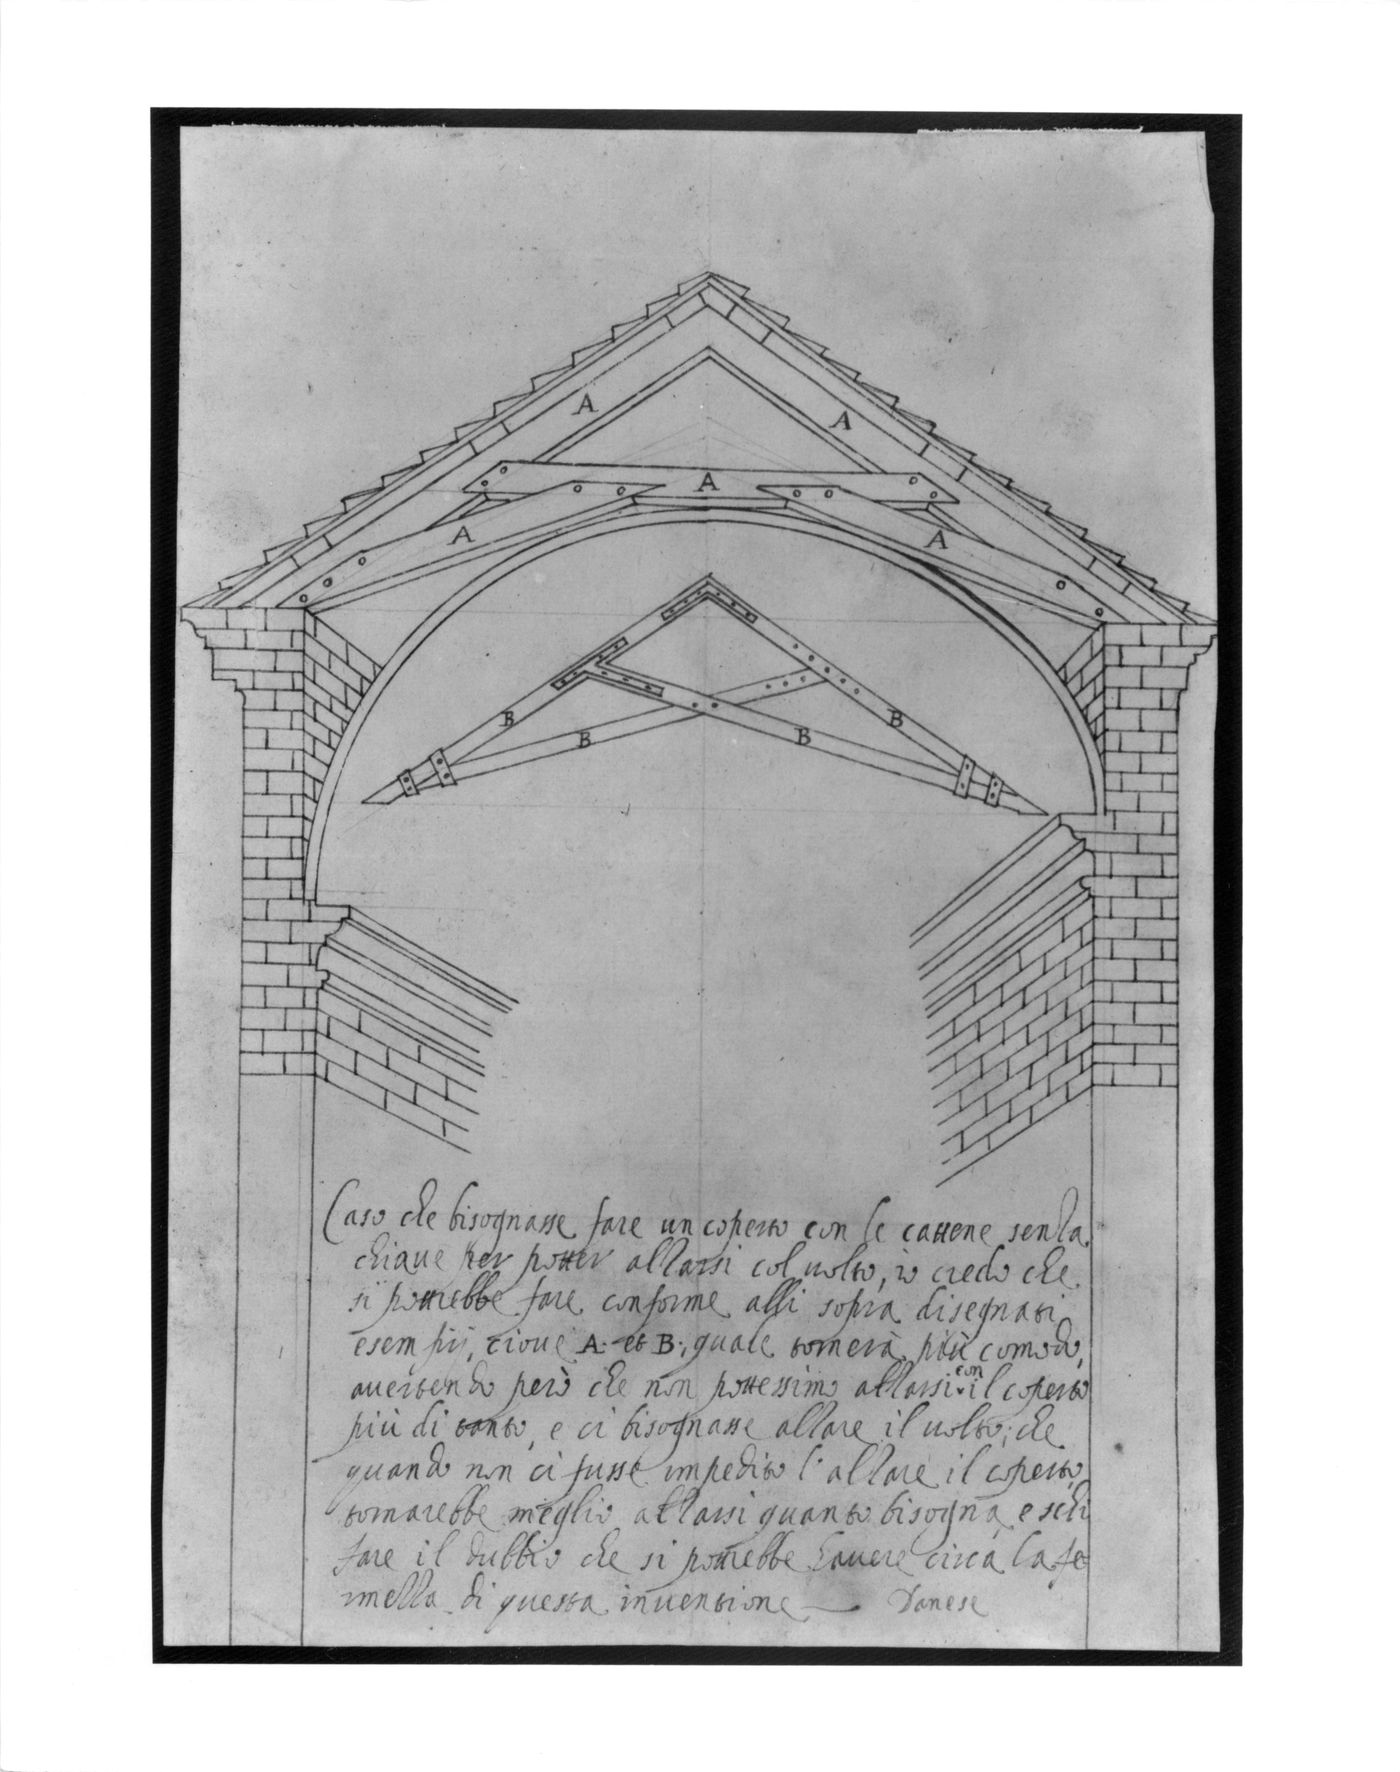 A
A
A
A
A
B
B
B
B
Caso che bisognasse fare un coperto con le cattene senza
chiaue per potter alzarsi col uolto, io credo che
si potrebbe fare conforme alli sopra disegnati
esempij, cioue A. et B; quale tornerà più comodo,
auertendo però che non potessimo alzarsi con il coperto
più di tanto, e ci bisognasse alzare il uolto; che
quando non ci fusse impedito l'alzare il coperto,
tornarebbe meglio alzarsi quanto bisogna, e schi
fare il dubbio che si potrebbe hauere circa la fe
mezza di questa inuentione — Danese